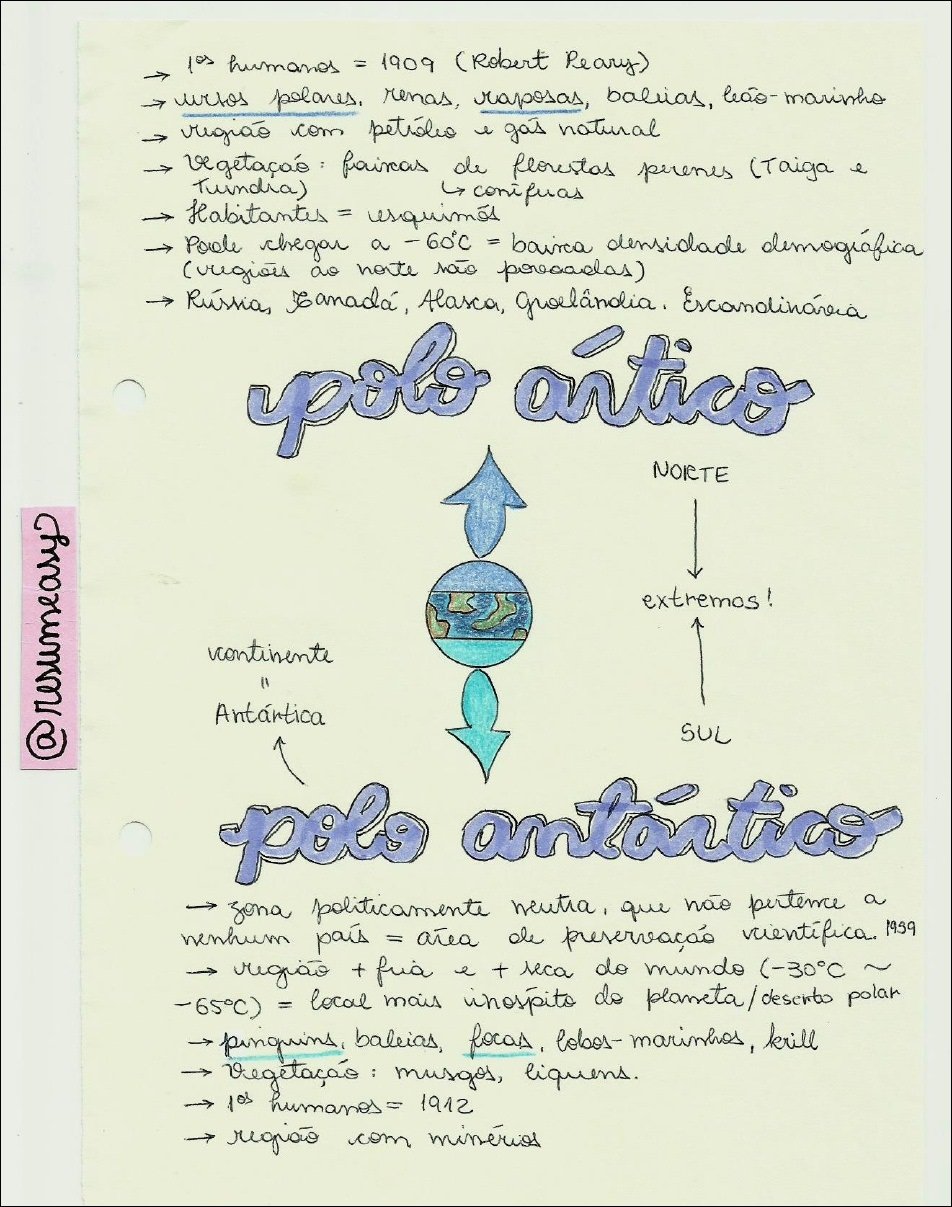 → 1ºs humanos = 1909 (Robert Peary)
→ ursos polares, renas, raposas, baleias, leão-marinho
→ região com petróleo e gás natural
→ Vegetação: faixas de florestas perenes (Taiga e
Tundra) ↳ coníferas
→ Habitantes = esquimós
→ Pode chegar a -60°C = baixa densidade demográfica
(regiões ao norte são povoadas)
→ Rússia, Canadá, Alasca, Groelândia. Escandinávia
polo ártico
NORTE
extremos!
SUL
continente
=
Antártica
@resumeasy
polo antártico
→ zona politicamente neutra, que não pertence a
nenhum país = área de preservação científica. 1959
→ região + fria e + seca do mundo (-30°C ~
-65°C) = local mais inóspito do planeta/deserto polar
→ pinguins, baleias, focas, lobos-marinhos, krill
→ Vegetação: musgos, liquens.
→ 1ºs humanos = 1912
→ região com minérios